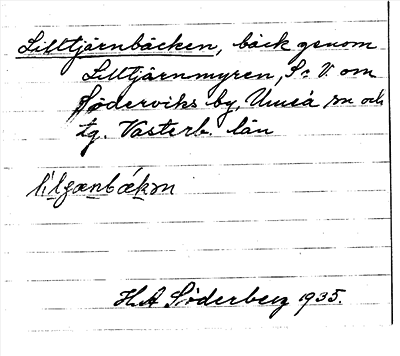 Lilltjärnbäcken, bäck genom
Lilltjärnmyren, S. V. om
Söderviks by, Umeå sn och
tg. Västerb. län
H. A Söderberg 1935.